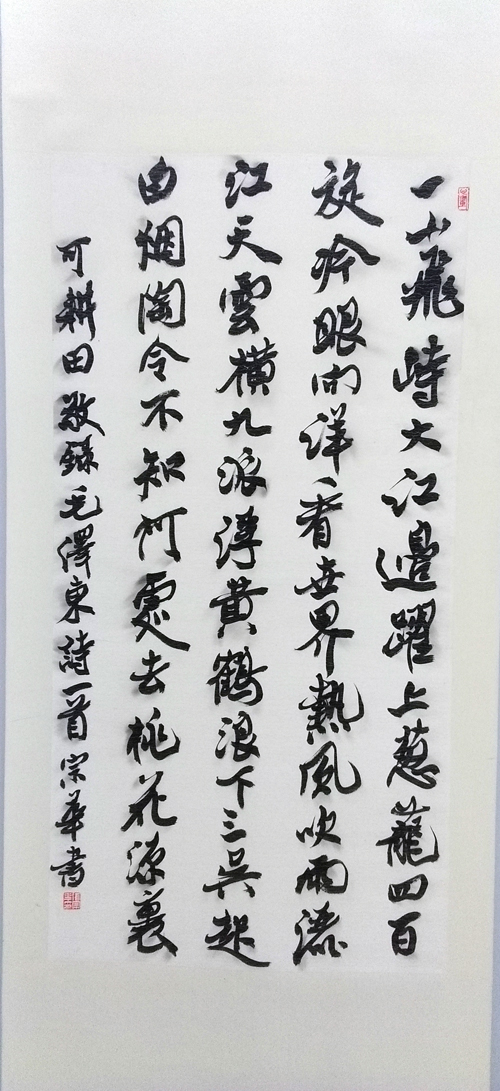 一山飛峙大江邊躍上葱蘢四百
旋冷眼向洋看世界熱風吹雨灑
江天雲橫九派浮黃鶴浪下三吳起
白烟陶令不知何處去桃花源裏
可耕田敬錄毛澤東詩一首宗華書